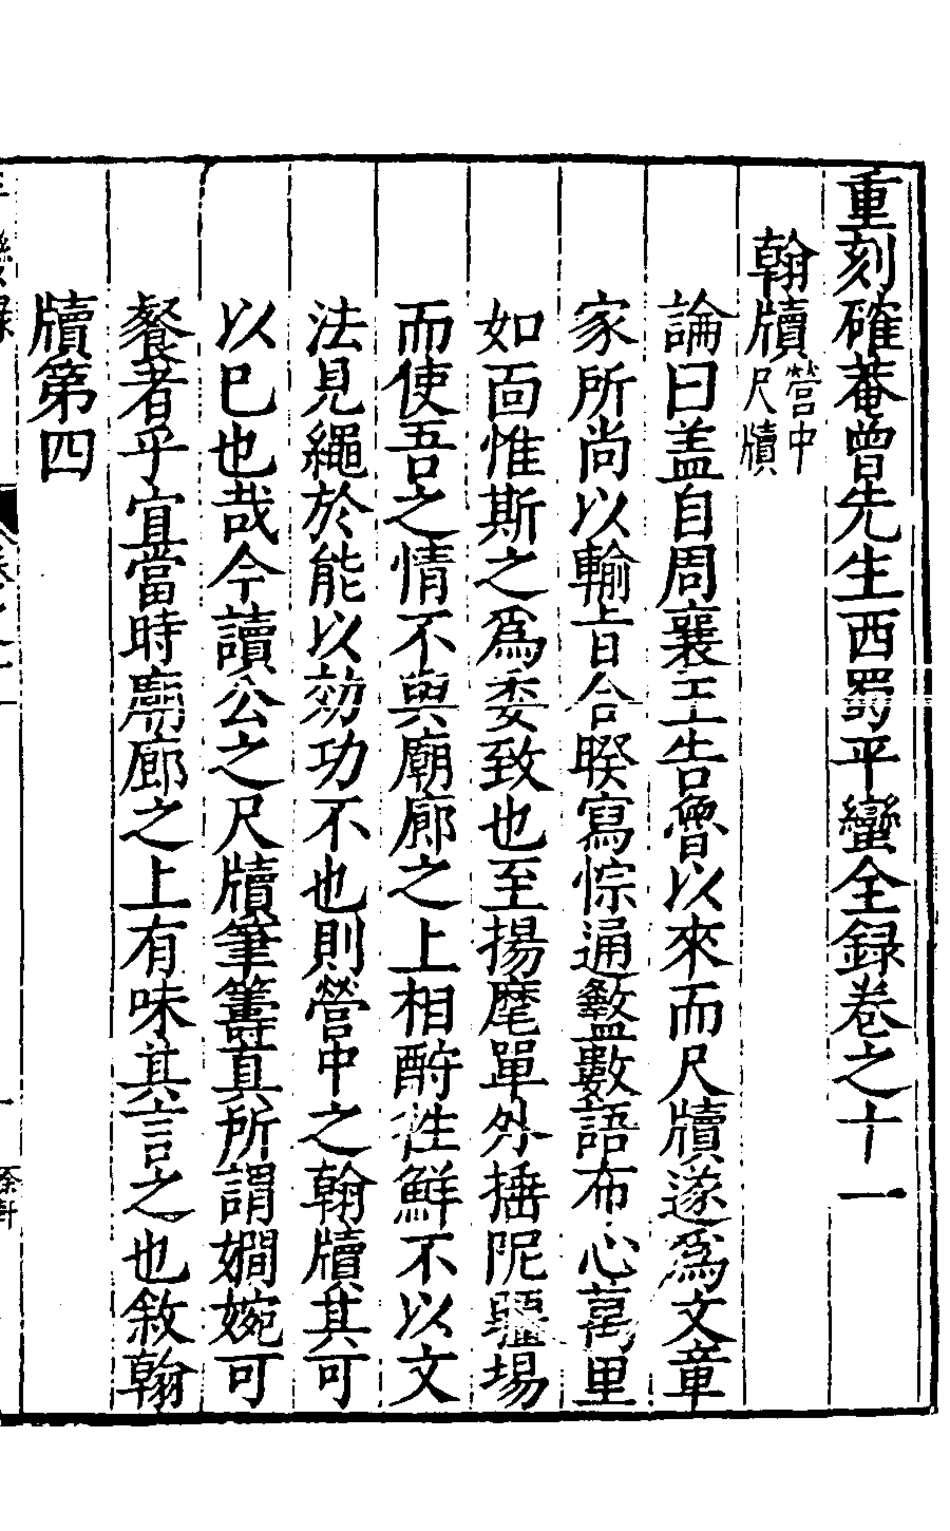 重刻確菴曾先生西蜀平蠻全録卷之十一
翰牘營中尺牘
論曰盖自周襄王告魯以來而尺牘遂爲文章
家所尚以輸旨合暌寫悰通蟿數語布心萬里
如靣惟斯之爲委致也至揚麾單外捶阸疆場
而使吾之情不與廟廊之上相酧徃鮮不以文
法見繩於能以効功不也則營中之翰牘其可
以巳也哉今讀公之尺牘筆籌真所謂嫺婉可
餐者乎宜當時廟廊之上有味其言之也敘翰
牘第四